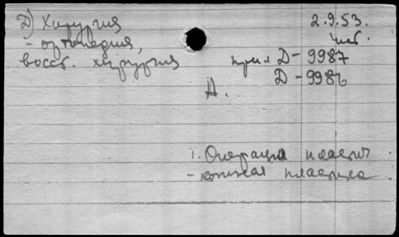 Д) Хирургия
- ортопедия,
восст. хирургия
2.9.53.
прил Д-9987
Д-9986
А.
1. Операция пластич.
- кожная пластика